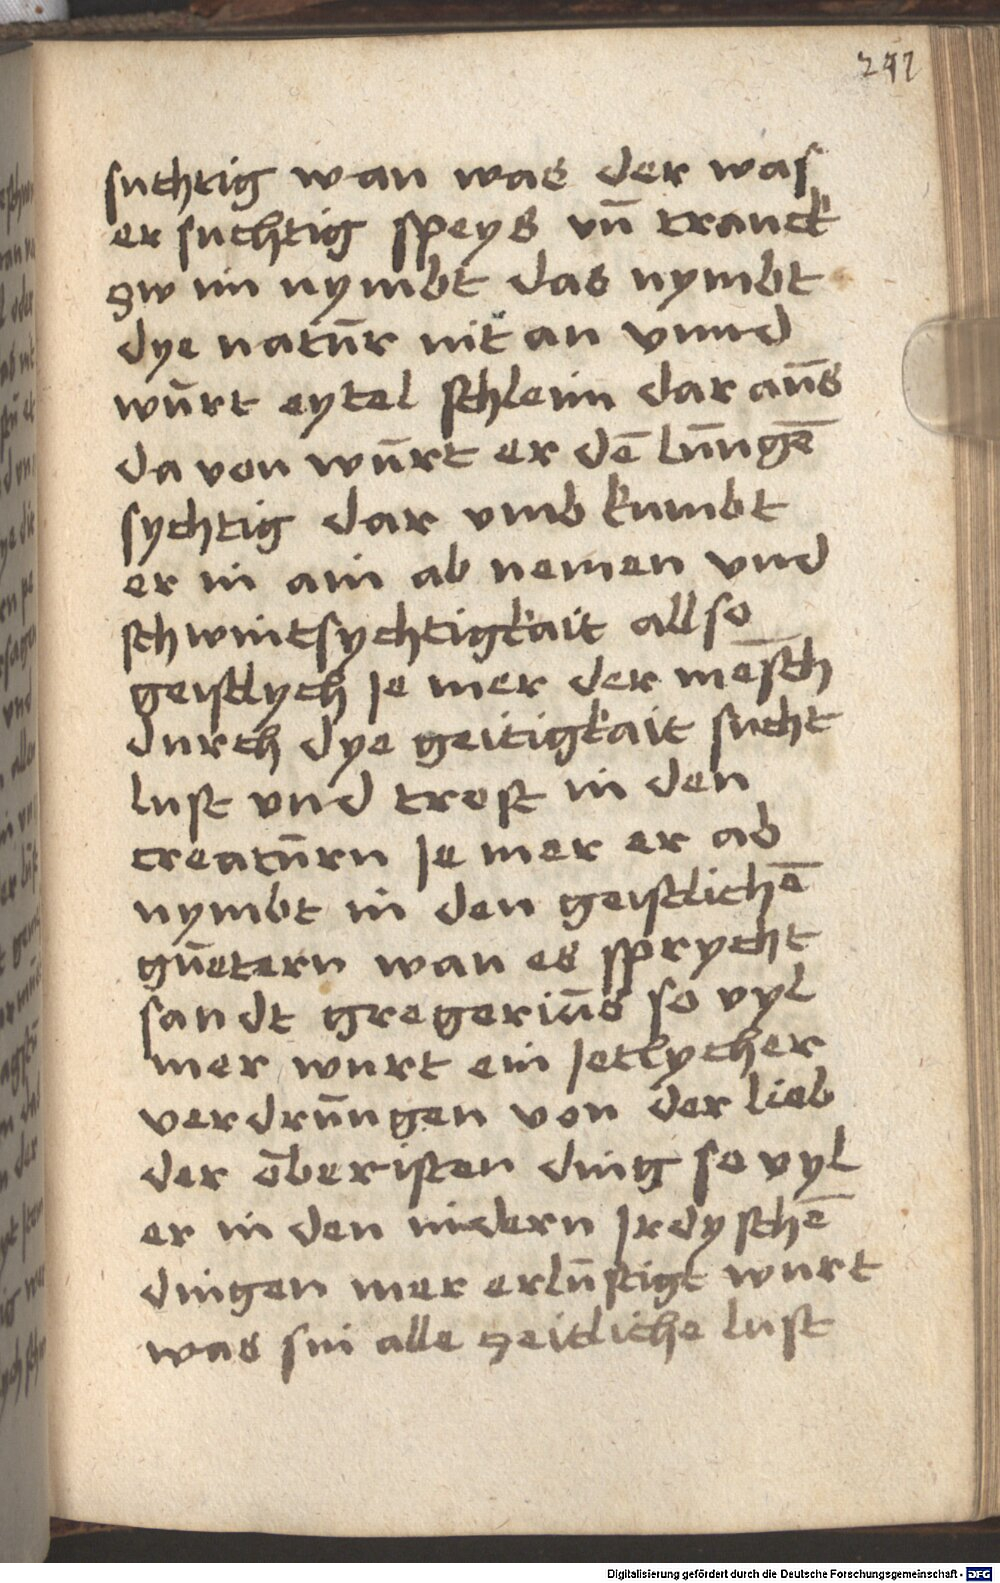 297
suchtig wan was der was
er suchtig speys vn̄ tranck
zw im nymbt das nymbt
dye natūr nit an vnnd
wūrt eytel schleim dar aūs
da von wūrt er dē lūngē
sychtig dar vmb kumbt
er in ain ab nemen vnd
schwintsychtigkait all so
geistlych Je mer der mēsch
durch dye geitigkait sucht
lust vnd trost in den
creatūrn Je mer er ab
nymbt in den geistlichē
gūetern wan es sprycht
sandt gregeriūs so vyl
mer wurt ein Jetlycher
verdrūngen von der lieb
der ōberisten ding so vyl
er in den nidern Jrdyschē
dingen mer erlūstigt wurt
was sin alle zeitliche lust
Digitalisierung gefördert durch die Deutsche Forschungsgemeinschaft - DFG